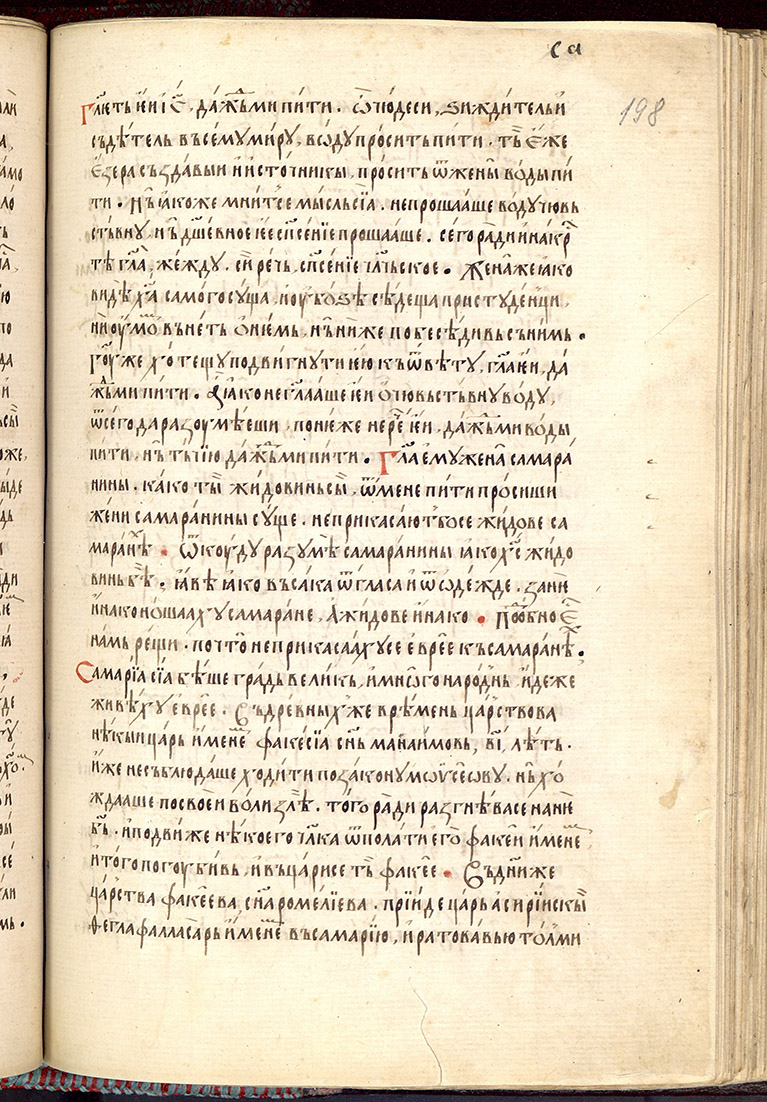 са
198
Гл҃еть ѥи і҃с, да́ждь ми пи́ти. ѿ чю́деси, ѕижди́тель и҆
съдѣ́тель въсе́му ми́ру, во́ду про́сить пи́ти. тъ̀ є҆́же
є҆́зера създа́выи и҆ и҆сто́чникы, про́сить ѿ жены̀ воды̀ пи́
ти. нъ̀ ꙗ҆́коже мни́тсе мы́сль сїа̀. не проша́аше во́ду чю́вь
стьвну, нъ̀ дш҃е́вное ѥѐ сп҃се́нїе проша́аше. сего̀ ра́ди и҆ на кр҃
тѣ̀ гл҃а, же́жду. си́рѣчь, сп҃се́нїе чл҃чьское. Жена́ же ꙗ҆́ко
ви́дѣ х҃а самого̀ су́ща, и҆ оу҆бо́ѕѣ сѣде́ща при студе́нци,
ни оу҆мо́мь вънѐть ѡ҆ не́мь, нъ̀ ни́же побесѣ́дивь съ ни́мь.
гоу҃ же хоте́щу подви́гнути ѥю̀ къ ѿвѣ́ту, гл҃а ѥи, да́
ждь ми пи́ти. ꙗ҆́ко не гл҃а́аше ѥи ѡ҆ чю́вьстьвну во́ду,
ѿ сего̀ да разоумѣ́ѥши, поне́же не ре́че ѥи, да́ждь ми во́ды
пи́ти, нъ̀ тъ́чїю да́ждь ми пи́ти. Гл҃а є҆му̀ жена̀ самара́
нины. ка́ко ты̀ жидо́винь сы̀, ѿ ме́не пи́ти про́сиши
жени̏ самара́нины су́ще. не прикаса́ют бо се жи́дове са
мара́нѣ. Ѿкоу́ду разу́мѣ самара́нины ꙗ҆́ко х҃с жидо́
винь бѣ̀. ꙗ҆́вѣ ꙗ҆́ко въса́ка ѿ гла́са и҆ ѿ ѡ҆де́жде. занѐ
и҆на́ко ноша́аху самара́не, а҆ жи́дове и҆на́ко. Подо́бно є҆́
на́мь рещи̏. почто̀ не прикаса́аху се є҆вре́е къ самара́нѣ.
Самарі́а сїа̀ бѣ́ше гра́дь вели́кь, и҆ мно́го наро́днь и҆де́же
живѣ́ху є҆вре́е. Въ дре́вных же врѣ́мень ца́рствова
нѣ́кыи ца́рь и҆́менемь факесі́а сн҃ь манаи́мовь, в҃і, лѣ́ть.
и҆́же не съблюда́ше ходи́ти по зако́ну мѡѷсе́ѡву. нъ̀ хо́
жда́аше по свое́и во́ли злѣ̀. того̀ ра́ди разгнѣ́ва се на нѥ̀
б҃ь. и҆ подви́же нѣ́коего чл҃ка ѿ пола́ти его̀ факе́и и҆́менемь
и҆ того̀ погоу́бивь, и҆ въца́ри се тъ̀ факе́е. Въ дни́ же
ца́рства факе́ева, сн҃а роме́лїева. прїи́де ца́рь а҆сирі́искыи
ѳеглафалласа́рь и҆́менемь въ самарі́ю, и҆ ратова́вь ю то́лми